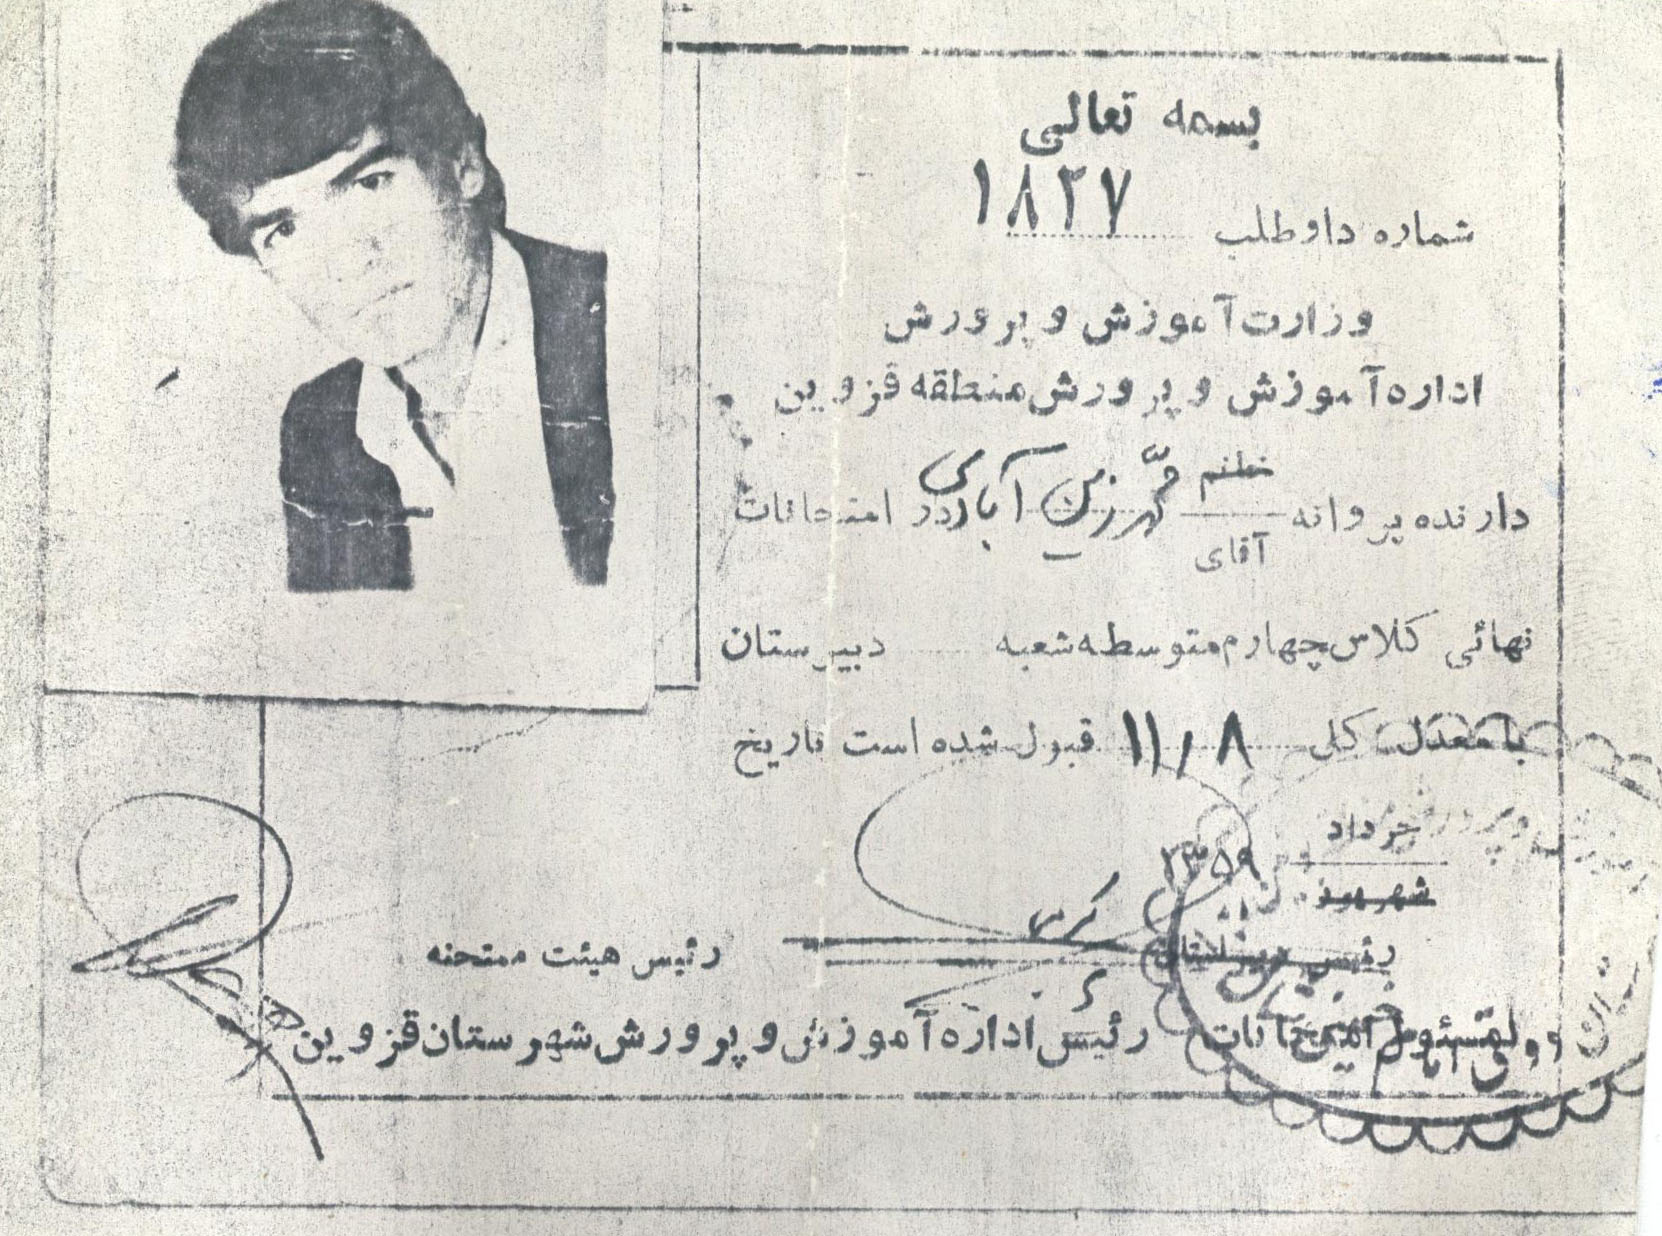 بسمه تعالی
شماره داوطلب ۱۸۲۷
وزارت آموزش و پرورش
اداره آموزش و پرورش منطقه قزوین
دارنده پروانه خانم
آقای
زین آبادی در امتحانات
نهائی کلاس چهارم متوسطه شعبه ........ دبیرستان
با معدل کلی ۱۱٫۸ قبول شده است تاریخ
خرداد
شهریور
۱۳۵۹
رئیس دبیرستان
رئیس هیئت ممتحنه
و مسئول امتحانات
رئیس اداره آموزش و پرورش شهرستان قزوین